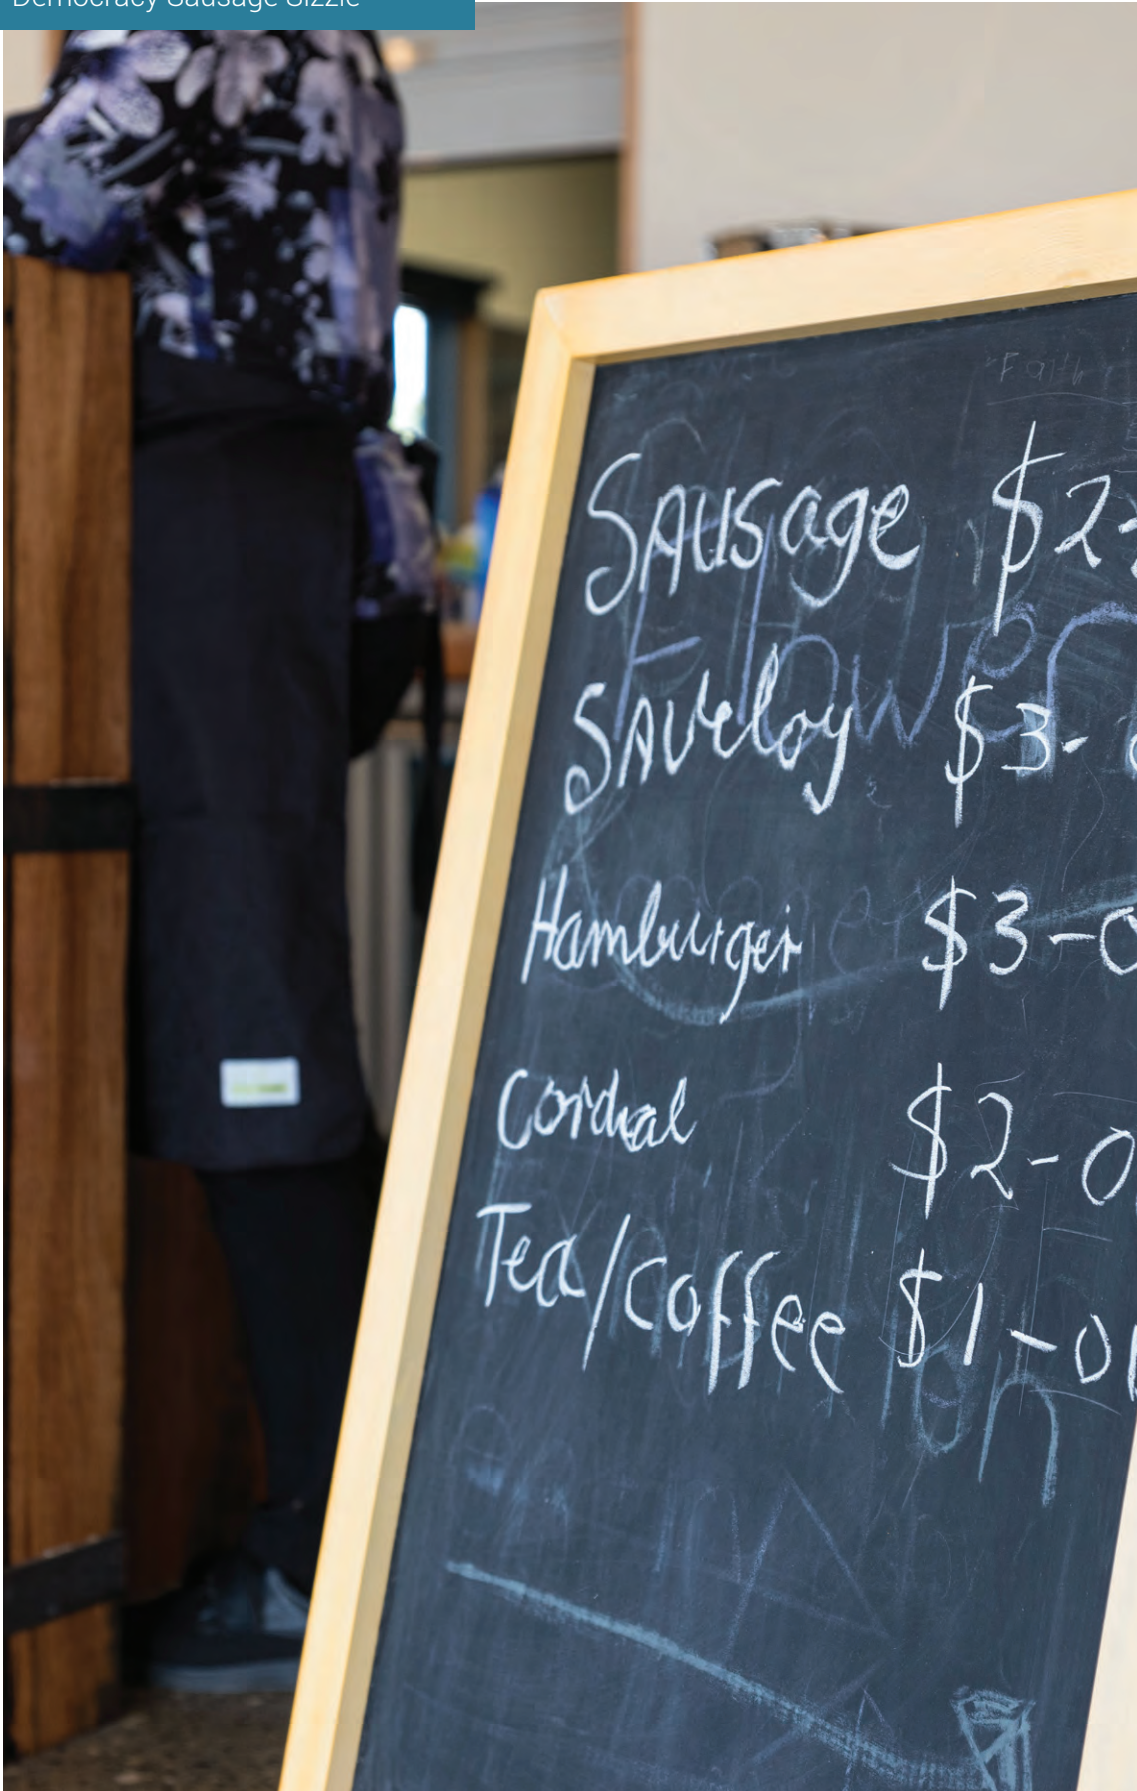 Democracy Sausage Sizzle
Faith
Sausage $2-
Flower
Saveloy $3-
Hamburger $3-0
Cordial $2-0
Tea/Coffee $1-0